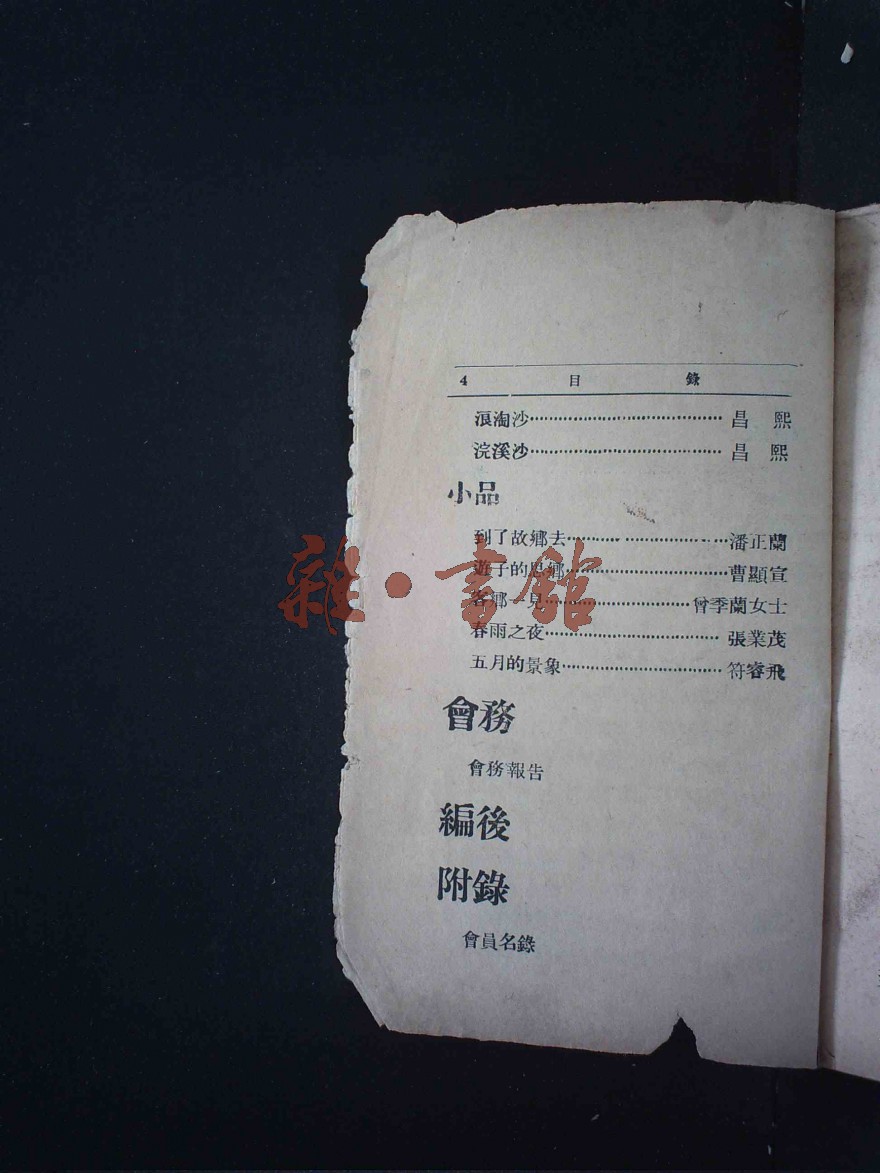 4 目錄
浪淘沙……昌熙
浣溪沙……昌熙
小品
到了故鄉去……潘正蘭
遊子的思鄉……曹顯宣
客鄉一見……曾季蘭女士
春雨之夜……張業茂
五月的景象……符睿飛
會務
會務報告
編後
附錄
會員名錄
雜·書館